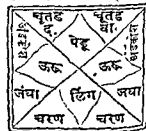 चूतड चूतड
द. वा.
पेडू
ऊरू ऊरू
जंघा लिंग जघा
चरण चरण